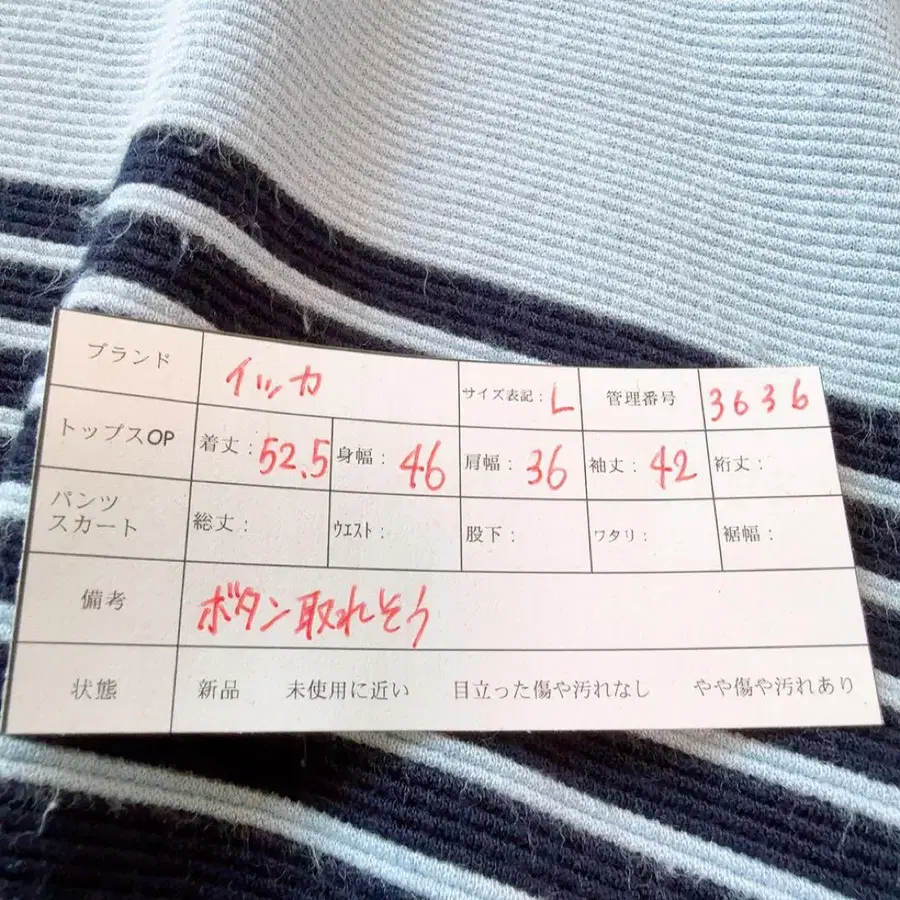 ブランド イッカ サイズ表記：L 管理番号 3636
トップスOP 着丈：52.5 身幅：46 肩幅：36 袖丈：42 裄丈：
パンツ
スカート 総丈： ウエスト： 股下： ワタリ： 裾幅：
備考 ボタン取れそう
状態 新品 未使用に近い 目立った傷や汚れなし やや傷や汚れあり